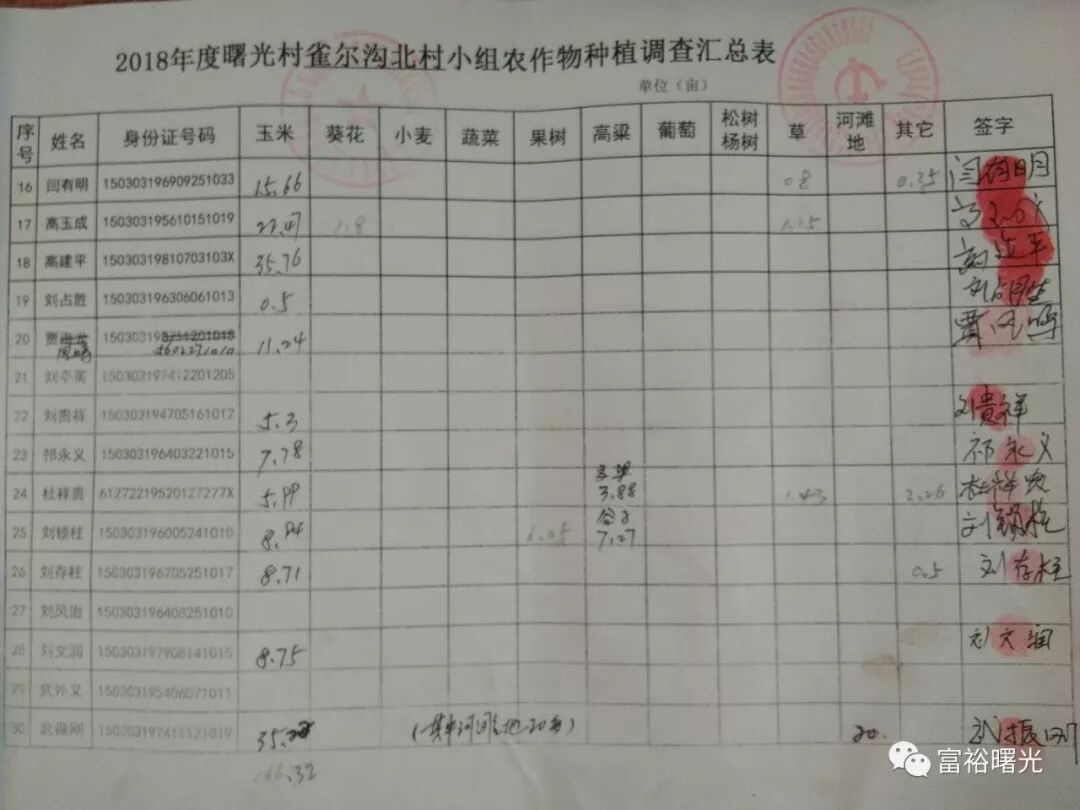 2018年度曙光村雀尔沟北村小组农作物种植调查汇总表
单位（亩）
序号 姓名 身份证号码 玉米 葵花 小麦 蔬菜 果树 高粱 葡萄 松树杨树 草 河滩地 其它 签字
16 闫有明 150303196909251033 15.66 0.8 0.35 闫有明
17 高玉成 150303195610151019 22.47 1.8 1.15 高玉成
18 高建平 15030319810703103X 35.76 高建平
19 刘占胜 150303196306061013 0.5 刘占胜
20 贾 凤鸣 15030319 11.24 贾凤鸣
21 刘平英 150303197412201205
22 刘贵祥 150303194705161012 5.3 刘贵祥
23 祁永义 150303196403221015 7.78 祁永义
24 杜祥贵 61272219520127277X 5.99 3.88 1.43 2.26 杜祥贵
25 刘锁柱 150303196005241010 8.94 谷子 7.27 刘锁柱
26 刘存柱 150303196705251017 8.71 0.5 刘存柱
27 刘凤治 150303196408251010
28 刘文润 150303197908141015 8.75 刘文润
29 武外义 150303195406071011
30 武振刚 150303197411121019 (其中河滩地20亩) 20. 武振刚
166.32
富裕曙光